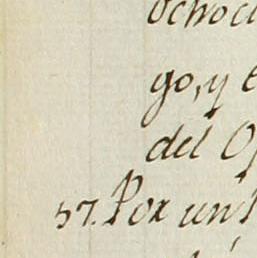 ochoci
go, y e
del Of
57. Por un